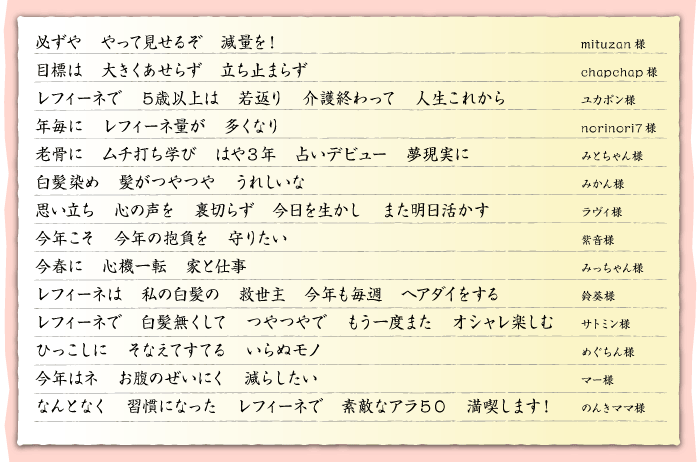 必ずや　やって見せるぞ　減量を！　mituzan 様
目標は　大きくあせらず　立ち止まらず　chapchap 様
レフィーネで　５歳以上は　若返り　介護終わって　人生これから　ユカポン様
年毎に　レフィーネ量が　多くなり　norinori7 様
老骨に　ムチ打ち学び　はや３年　占いデビュー　夢現実に　みとちゃん様
白髪染め　髪がつやつや　うれしいな　みかん様
思い立ち　心の声を　裏切らず　今日を生かし　また明日活かす　ラヴィ様
今年こそ　今年の抱負を　守りたい　紫音様
今春に　心機一転　家と仕事　みっちゃん様
レフィーネは　私の白髪の　救世主　今年も毎週　ヘアダイをする　鈴葵様
レフィーネで　白髪無くして　つやつやで　もう一度また　オシャレ楽しむ　サトミン様
ひっこしに　そなえてすてる　いらぬモノ　めぐちん様
今年はネ　お腹のぜいにく　減らしたい　マー様
なんとなく　習慣になった　レフィーネで　素敵なアラ５０　満喫します！　のんきママ様